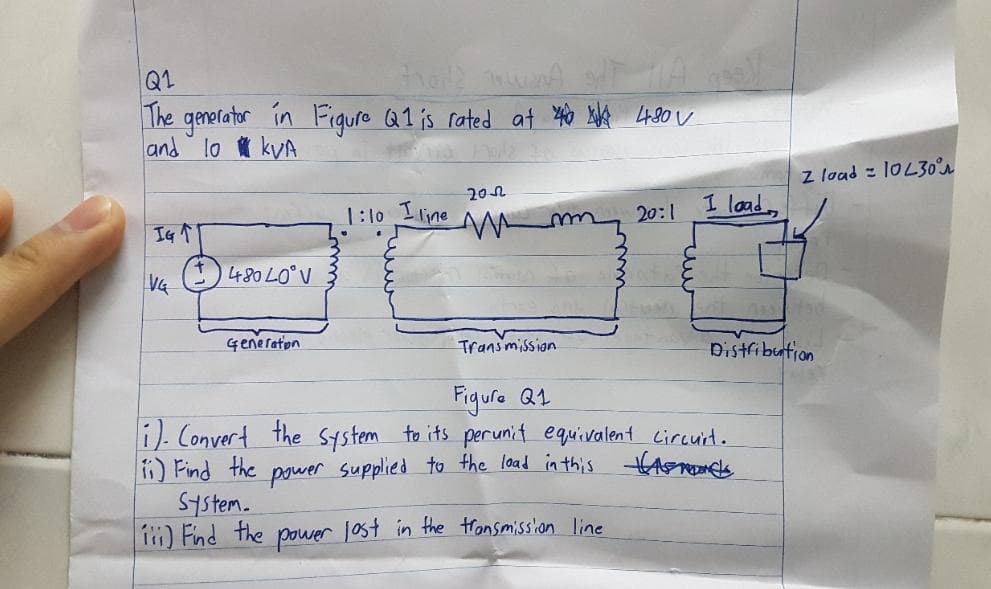 Q1
The generator in Figure Q1 is rated at 480 V
and 10 kVA
Z load = 10∠30°Ω
20Ω
1:10 I line 20:1 I load
IG ↑
VG + - 480∠0°V
Generation Transmission Distribution
Figure Q1
i). Convert the system to its perunit equivalent circuit.
ii) Find the power supplied to the load in this
System.
iii) Find the power lost in the transmission line